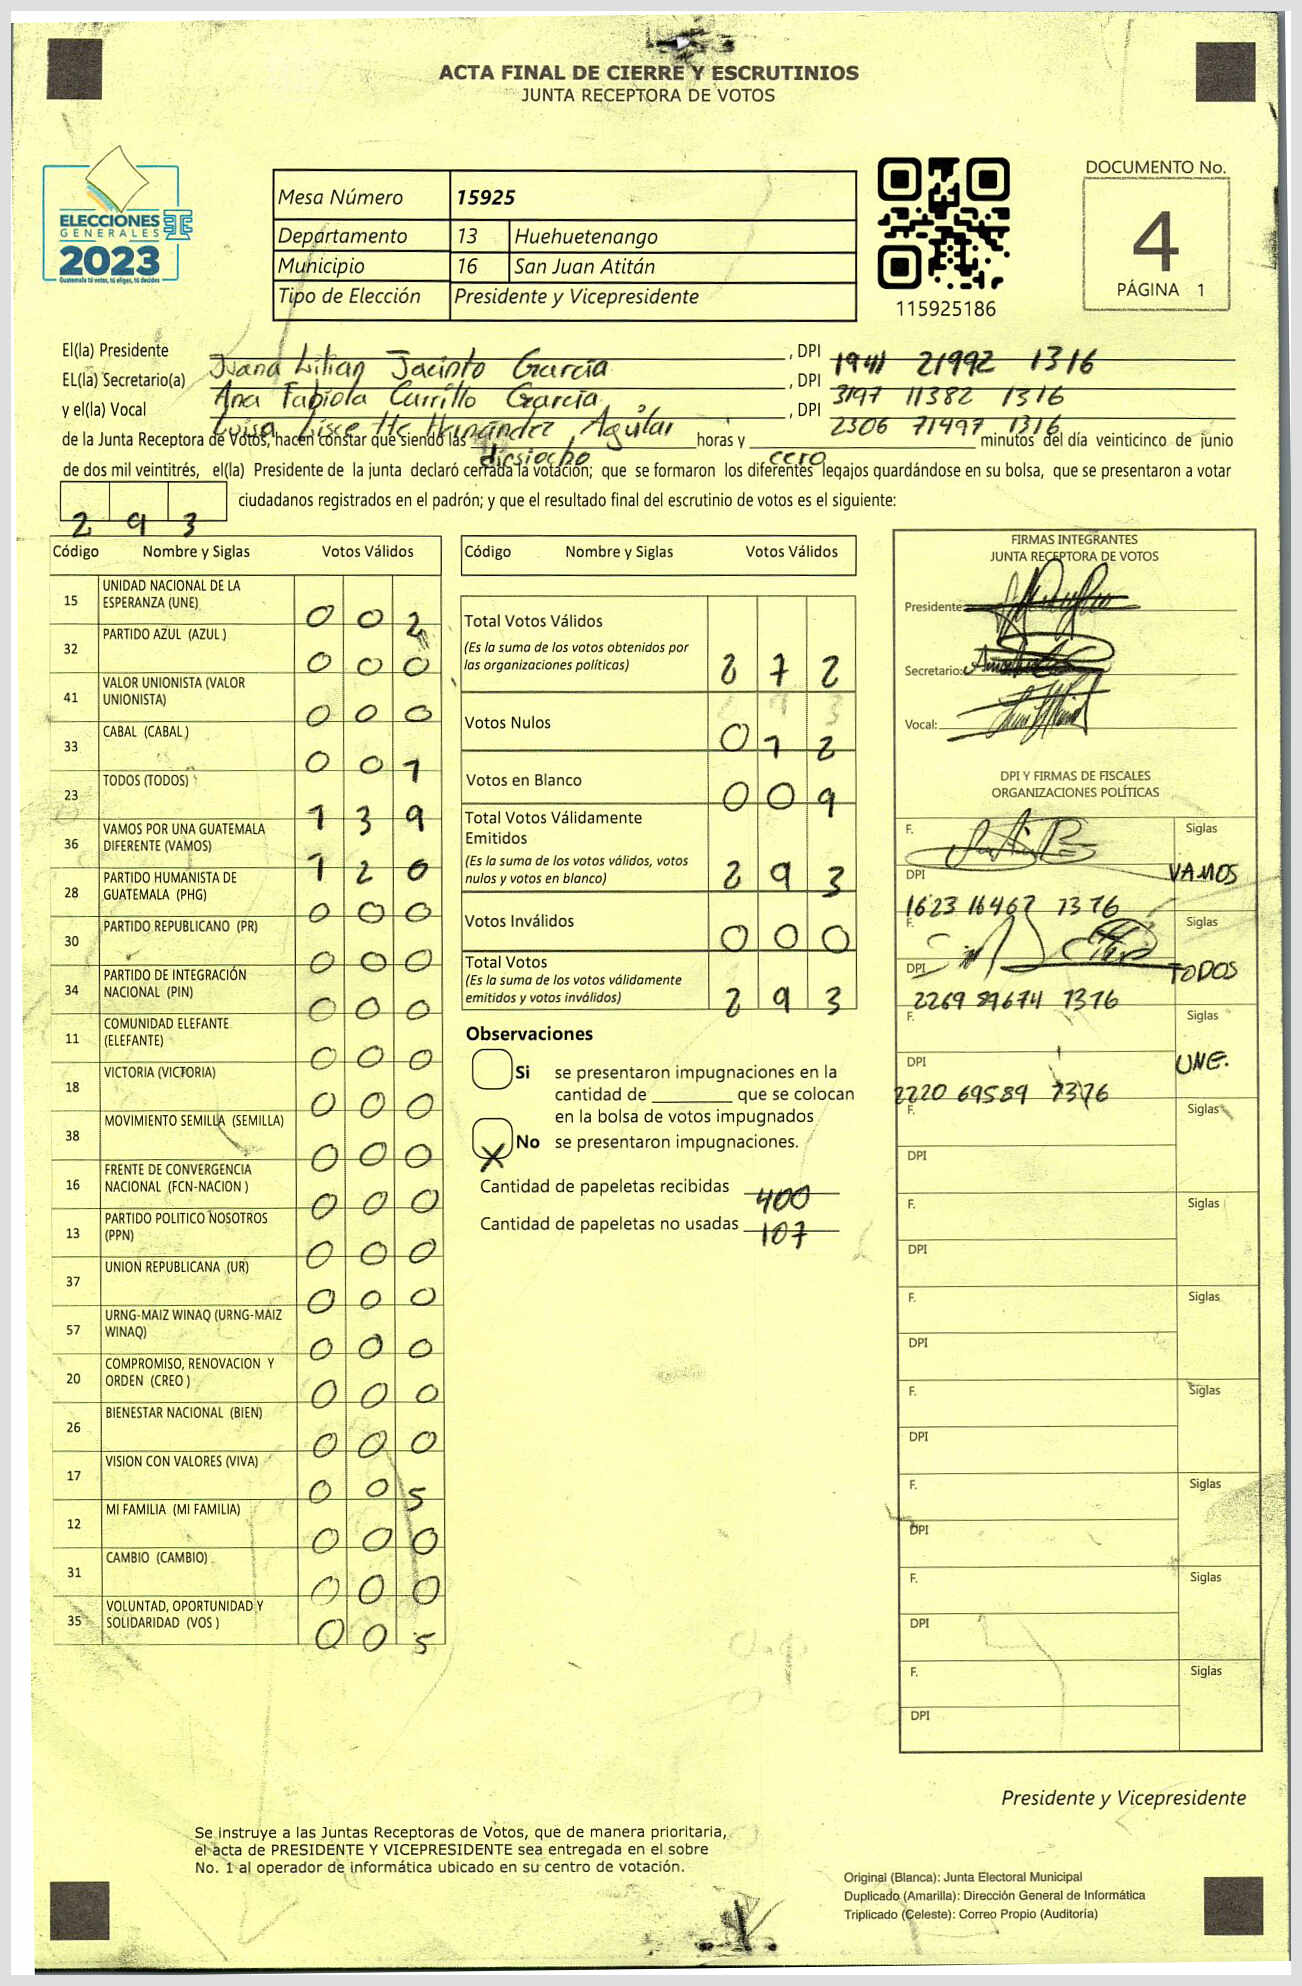 ACTA FINAL DE CIERRE Y ESCRUTINIOS
JUNTA RECEPTORA DE VOTOS
ELECCIONES
GENERALES
2023
Guatemala tú votas, tú eliges, tú decides
Mesa Número 15925
Departamento 13 Huehuetenango
Municipio 16 San Juan Atitán
Tipo de Elección Presidente y Vicepresidente
115925186
DOCUMENTO No.
4
PÁGINA 1
El(la) Presidente Juana Lilian Jacinto García, DPI 1941 21992 1316
EL(la) Secretario(a) Ana Fabiola Carrillo García, DPI 3197 11382 1316
y el(la) Vocal Luisa Hernández Aguilar, DPI 2306 71497 1316
de la Junta Receptora de Votos, hacen constar que siendo las dieciocho horas y cero minutos del día veinticinco de junio
de dos mil veintitrés, el(la) Presidente de la junta declaró cerrada la votación; que se formaron los diferentes legajos guardándose en su bolsa, que se presentaron a votar
293 ciudadanos registrados en el padrón; y que el resultado final del escrutinio de votos es el siguiente:
Código Nombre y Siglas Votos Válidos
15 UNIDAD NACIONAL DE LA ESPERANZA (UNE) 0 0 2
32 PARTIDO AZUL (AZUL) 0 0 0
41 VALOR UNIONISTA (VALOR UNIONISTA) 0 0 0
33 CABAL (CABAL) 0 0 1
23 TODOS (TODOS) 1 3 9
36 VAMOS POR UNA GUATEMALA DIFERENTE (VAMOS) 1 2 0
28 PARTIDO HUMANISTA DE GUATEMALA (PHG) 0 0 0
30 PARTIDO REPUBLICANO (PR) 0 0 0
34 PARTIDO DE INTEGRACIÓN NACIONAL (PIN) 0 0 0
11 COMUNIDAD ELEFANTE (ELEFANTE) 0 0 0
18 VICTORIA (VICTORIA) 0 0 0
38 MOVIMIENTO SEMILLA (SEMILLA) 0 0 0
16 FRENTE DE CONVERGENCIA NACIONAL (FCN-NACION) 0 0 0
13 PARTIDO POLITICO NOSOTROS (PPN) 0 0 0
37 UNION REPUBLICANA (UR) 0 0 0
57 URNG-MAIZ WINAQ (URNG-MAIZ WINAQ) 0 0 0
20 COMPROMISO, RENOVACION Y ORDEN (CREO) 0 0 0
26 BIENESTAR NACIONAL (BIEN) 0 0 0
17 VISION CON VALORES (VIVA) 0 0 5
12 MI FAMILIA (MI FAMILIA) 0 0 0
31 CAMBIO (CAMBIO) 0 0 0
35 VOLUNTAD, OPORTUNIDAD Y SOLIDARIDAD (VOS) 0 0 5
Código Nombre y Siglas Votos Válidos
Total Votos Válidos
(Es la suma de los votos obtenidos por
las organizaciones políticas) 2 7 2
Votos Nulos 0 1 2
Votos en Blanco 0 0 9
Total Votos Válidamente
Emitidos
(Es la suma de los votos válidos, votos
nulos y votos en blanco) 2 9 3
Votos Inválidos 0 0 0
Total Votos
(Es la suma de los votos válidamente
emitidos y votos inválidos) 2 9 3
Observaciones
Si se presentaron impugnaciones en la
cantidad de ________ que se colocan
en la bolsa de votos impugnados
X No se presentaron impugnaciones.
Cantidad de papeletas recibidas 400
Cantidad de papeletas no usadas 107
FIRMAS INTEGRANTES
JUNTA RECEPTORA DE VOTOS
Presidente:
Secretario:
Vocal:
DPI Y FIRMAS DE FISCALES
ORGANIZACIONES POLÍTICAS
F. Siglas
DPI VAMOS
1623 16467 1316
F. Siglas
DPI TODOS
2269 89674 1316
F. Siglas
DPI UNE.
2220 69589 1316
F. Siglas
DPI
F. Siglas
DPI
F. Siglas
DPI
F. Siglas
DPI
F. Siglas
DPI
F. Siglas
DPI
F. Siglas
DPI
Presidente y Vicepresidente
Se instruye a las Juntas Receptoras de Votos, que de manera prioritaria,
el acta de PRESIDENTE Y VICEPRESIDENTE sea entregada en el sobre
No. 1 al operador de informática ubicado en su centro de votación.
Original (Blanca): Junta Electoral Municipal
Duplicado (Amarilla): Dirección General de Informática
Triplicado (Celeste): Correo Propio (Auditoría)